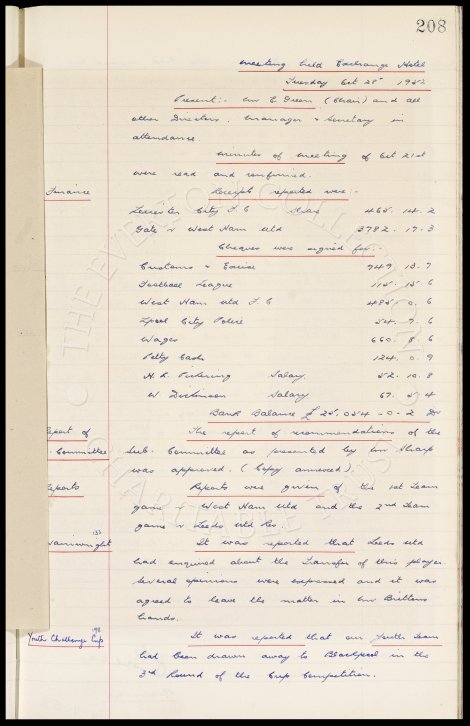 208
Meeting held Exchange Hotel
Tuesday Oct 28th 1952
Present:- Mr E Green (Chair) and all
other Directors, Manager & Secretary in
attendance.
Minutes of Meeting of Oct 21st
were read and confirmed.
Finance
Receipts reported were:-
Leicester City F C Share 465. 14. 2
Gate v West Ham Utd 3782. 17. 3
Cheques were signed for:-
Customs & Excise 949. 13. 7
Football League 115. 15. 6
West Ham Utd F. C 485. 0. 6
Lpool City Police 54. 9. 6
Wages 660. 8. 6
Petty Cash 124. 0. 9
H. R. Pickering Salary 52. 10. 8
W. Dickinson Salary 67. 5. 4
Bank Balance £ 25,054-0-2 Dr
eport of
. Committee
The report & recommendations of the
Sub. Committee as presented by Mr Sharp
was approved. (Copy annexed).
eports
Reports were given of the 1st Team
game v West Ham Utd and the 2nd Team
game v Leeds Utd Res.
132
Wainwright
It was reported that Leeds Utd
had enquired about the Transfer of this player.
Several opinions were expressed and it was
agreed to leave the matter in Mr Brittons
hands.
198
Youth Challenge Cup
It was reported that our Youth Team
had been drawn away to Blackpool in the
3rd Round of the Cup Competition.
THE EVERTON COLLECTION
CHARITABLE TRUST